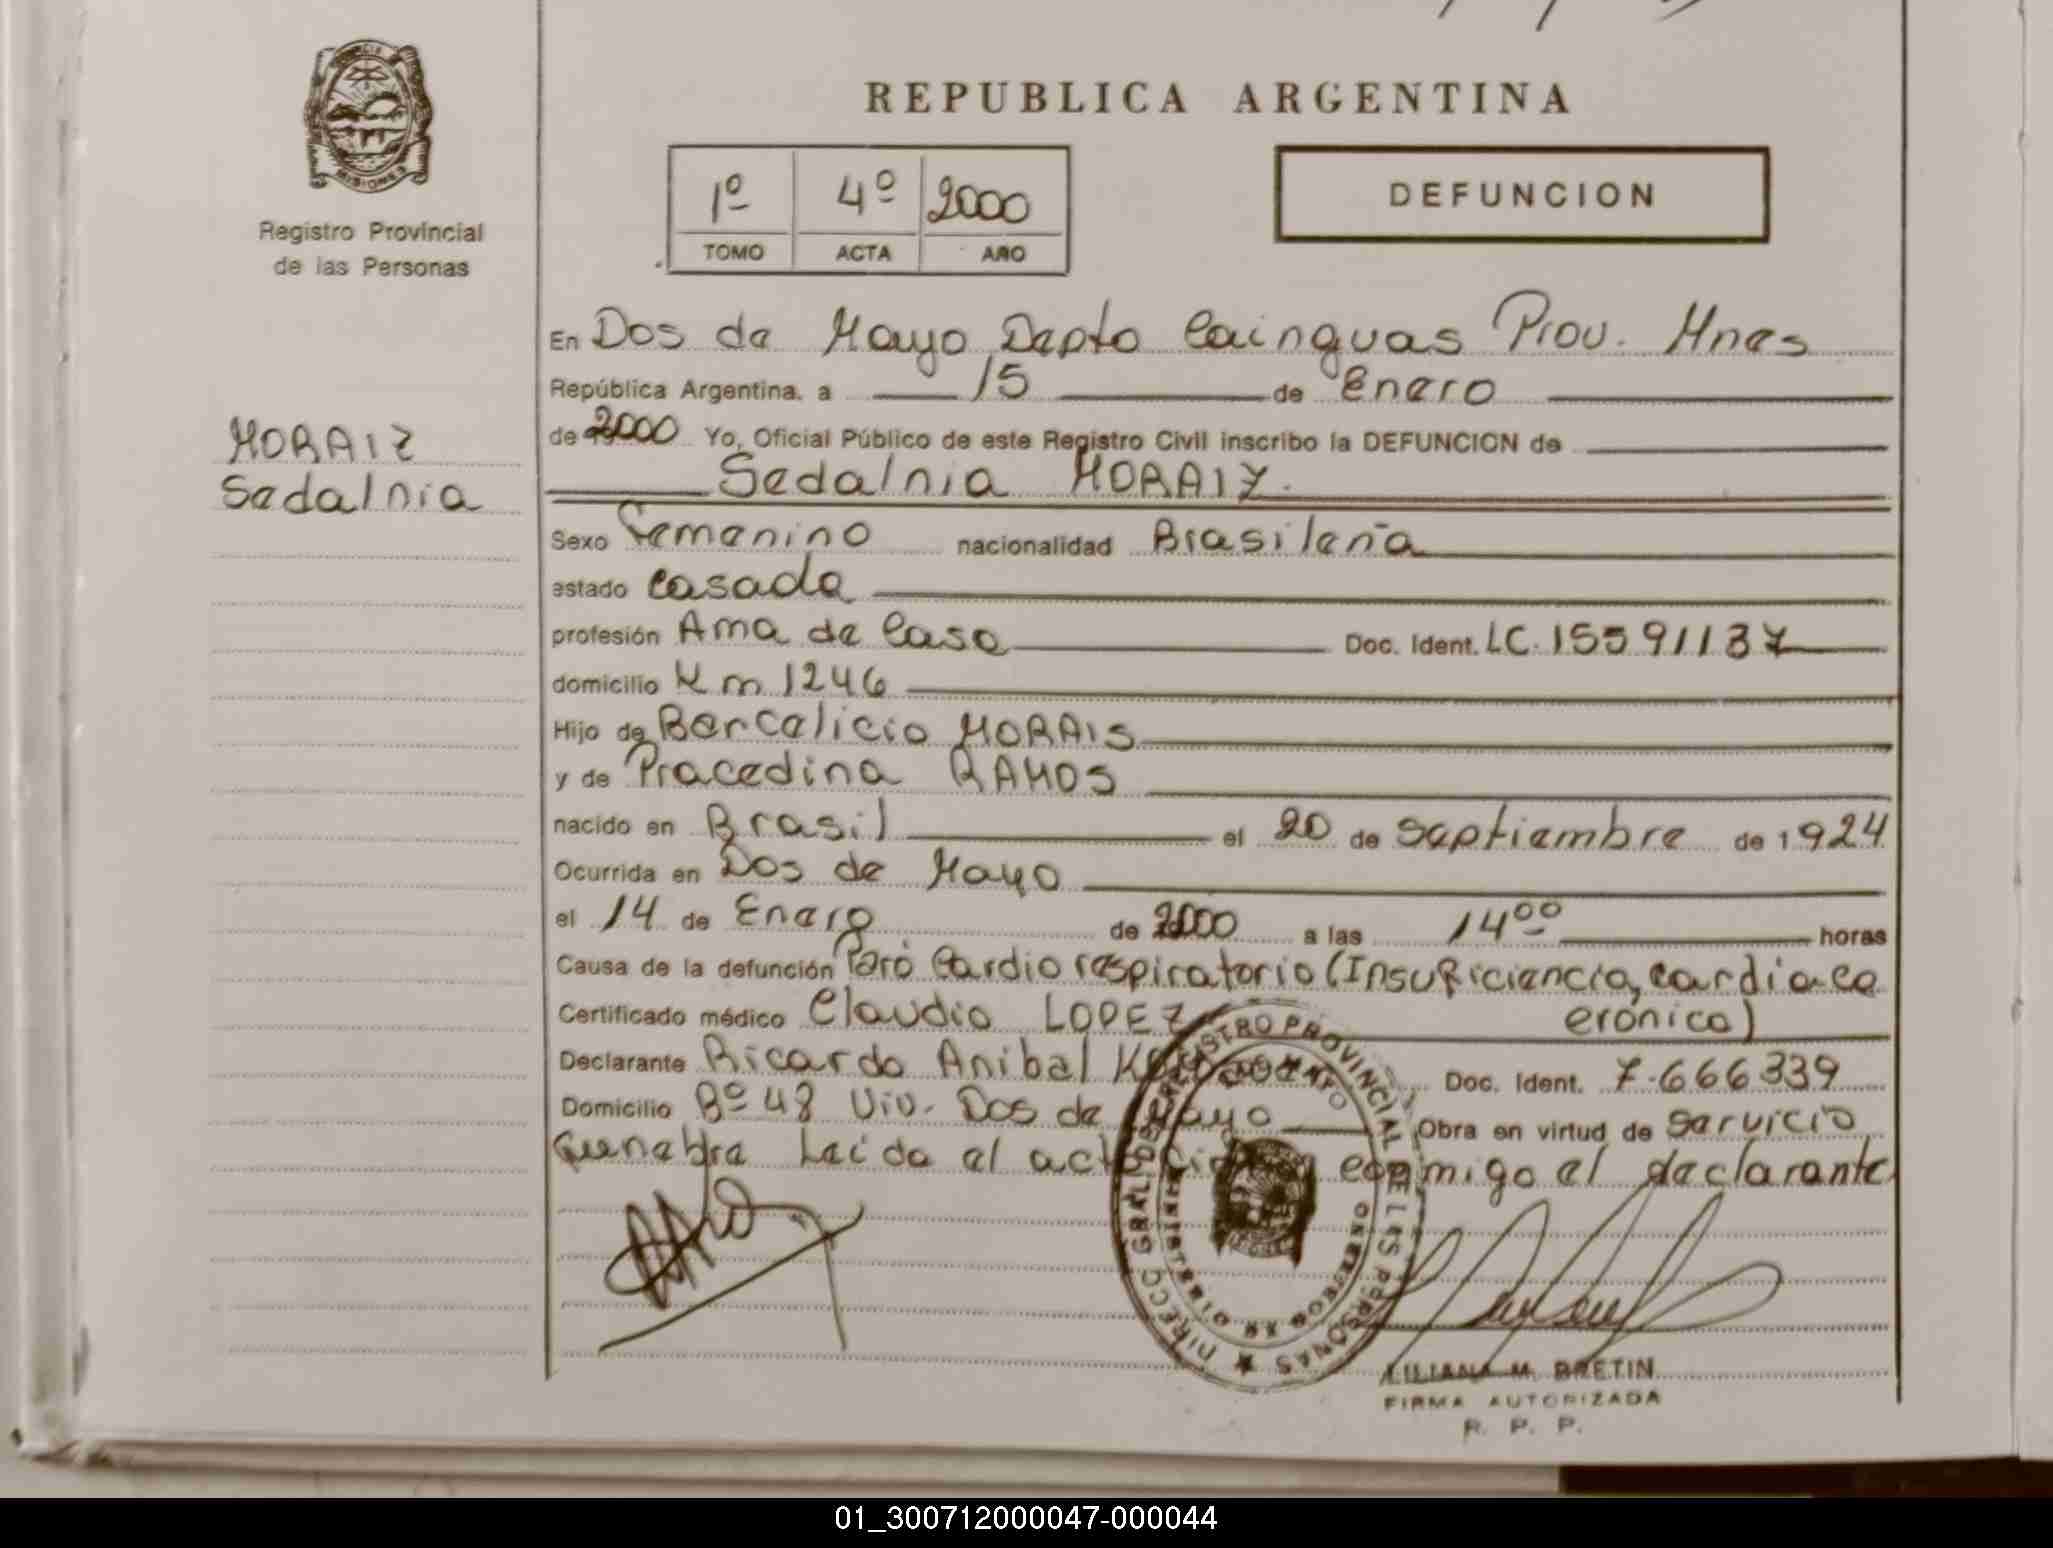 REPUBLICA ARGENTINA
1º 4º 2000
TOMO ACTA AÑO
DEFUNCION
MISIONES
Registro Provincial
de las Personas
MORAIZ
Sedalnia
En Dos de Mayo Depto Cainguas Prov. Mnes
República Argentina, a 15 de Enero
de 2000 Yo, Oficial Público de este Registro Civil inscribo la DEFUNCION de
Sedalnia MORAIZ.
Sexo Femenino nacionalidad Brasileña
estado Casada
profesión Ama de Casa Doc. Ident. LC. 15591137
domicilio Km 1246
Hijo de Bercalicio MORAIS
y de Pracedina RAMOS
nacido en Brasil el 20 de Septiembre de 1924
Ocurrida en Dos de Mayo
el 14 de Enero de 2000 a las 14ºº horas
Causa de la defunción Paro Cardio respiratorio (Insuficiencia, cardiaca
cronica)
Certificado médico Claudio LOPEZ
Declarante Ricardo Anibal Doc. Ident. 7.666339
Domicilio Bº 48 Viv. Dos de Mayo Obra en virtud de Servicio
Funebre Leida el acta conmigo el declarante
DIRECC GRAL DEL REGISTRO PROVINCIAL DE LAS PERSONAS
DOS DE MAYO
MISIONES
LILIANA M. BRETIN
FIRMA AUTORIZADA
R. P. P.
01_300712000047-000044